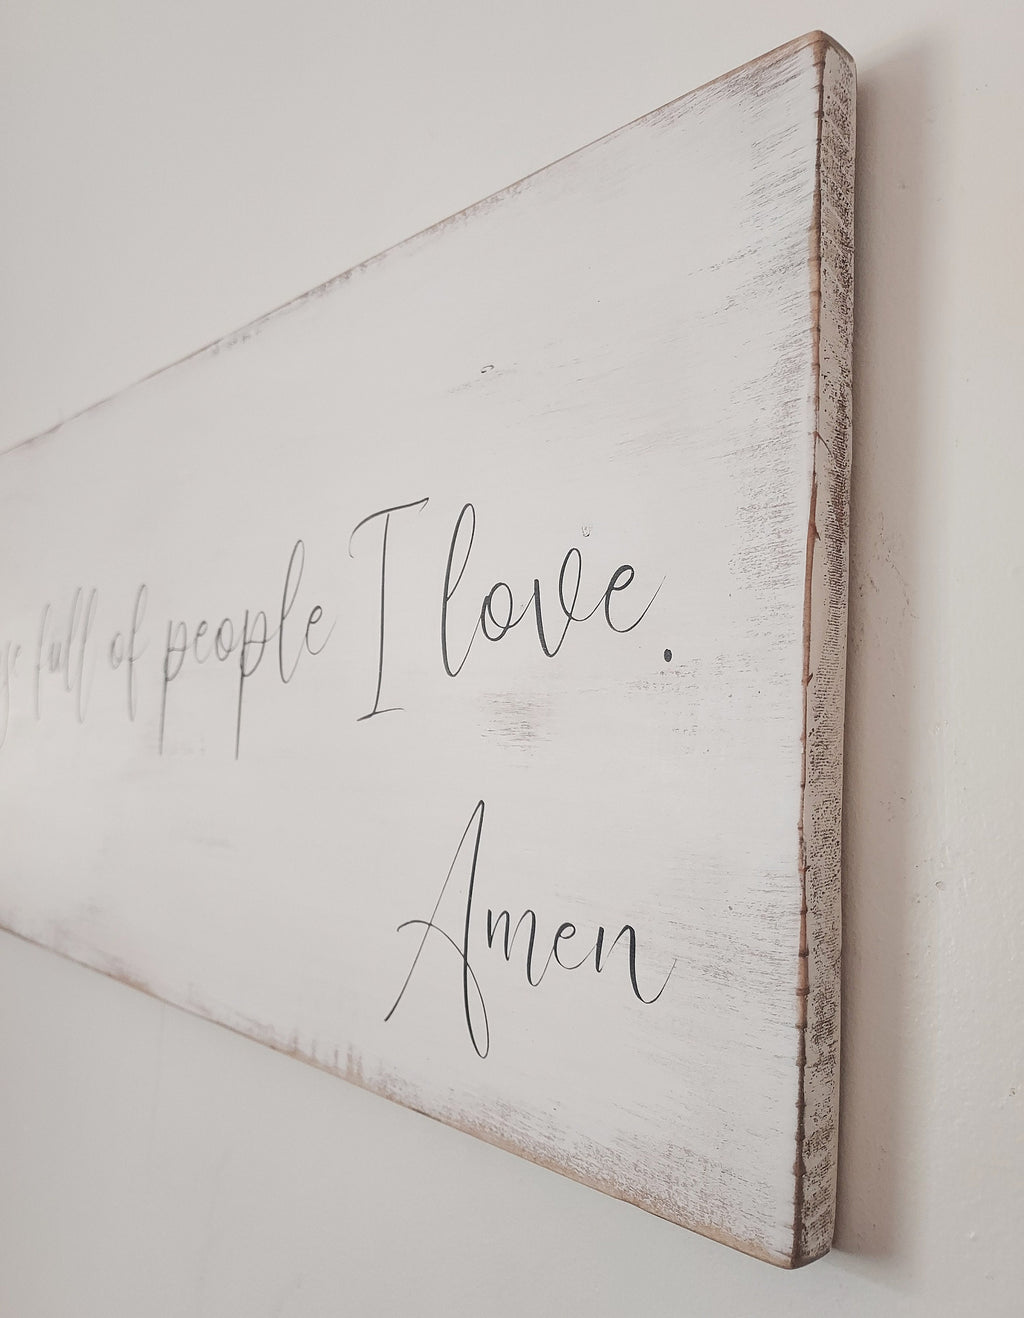 full of people I love.
Amen